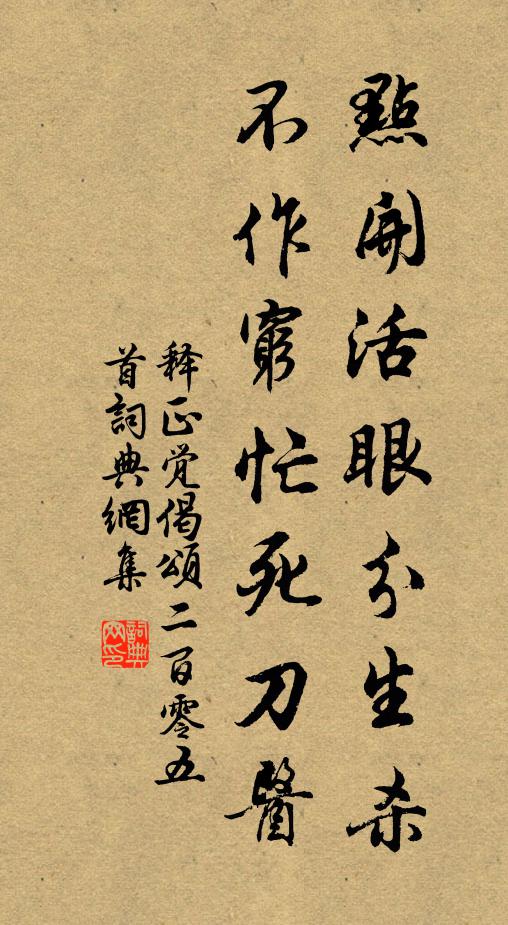 點開活眼分生殺
不作窮忙死刀醫
释正觉偈頌二百零五
首詞典網集
詞典網印